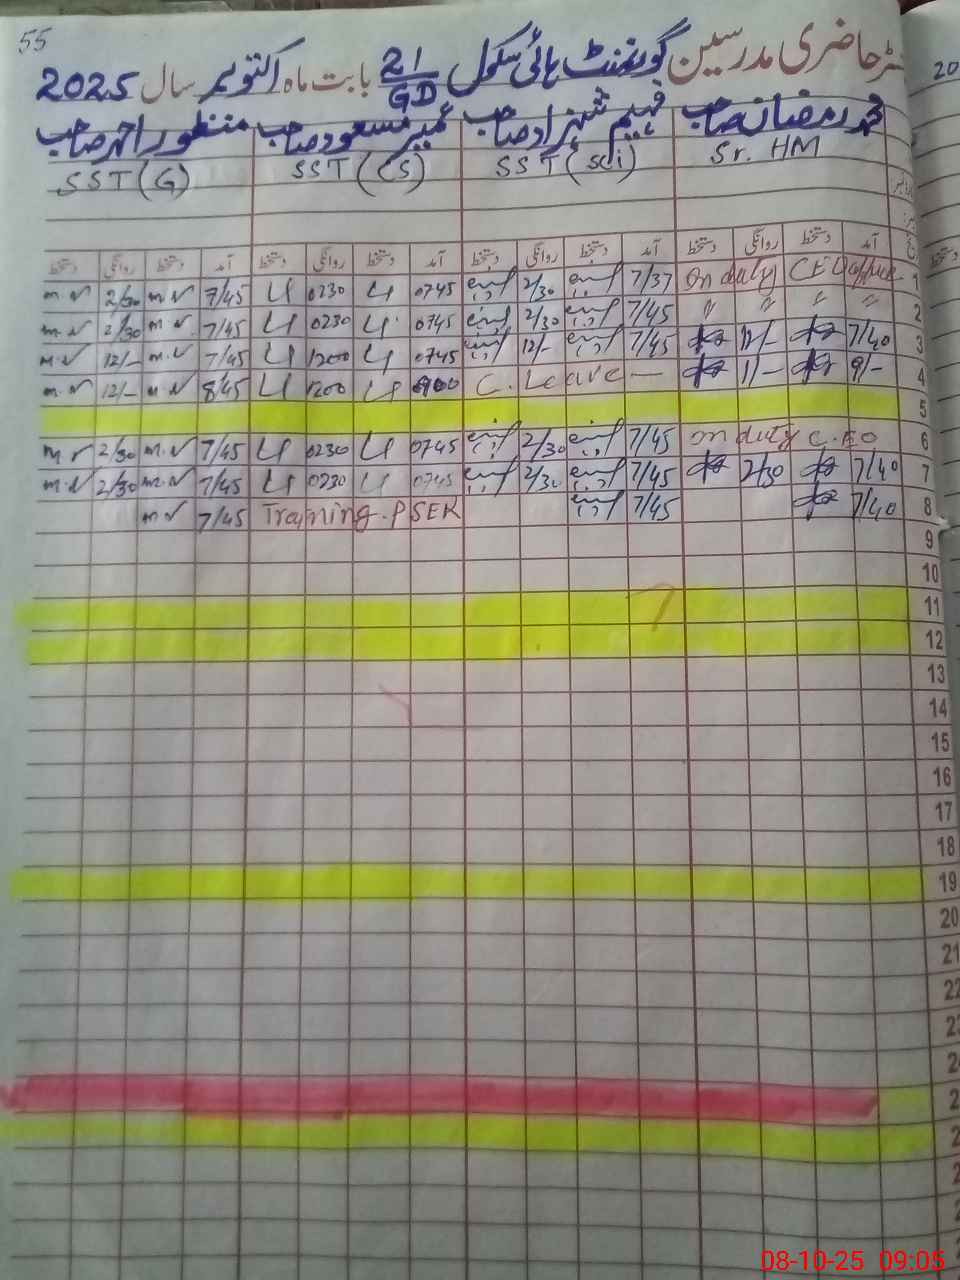 55
رجسٹر حاضری مدرسین گورنمنٹ ہائی سکول 21/GD بابت ماہ اکتوبر سال 2025
20
محمد رمضان صاحب فہیم شہزاد صاحب عمیر مسعود صاحب منظور احمد صاحب
Sr. HM SST (sci) SST (CS) SST (G)
آمد دستخط روانگی دستخط آمد دستخط روانگی دستخط آمد دستخط روانگی دستخط آمد دستخط روانگی دستخط
m.N 2/30 m.N 7/45 0230 0745 2/30 7/37 On duty CEO office 1
m.N 2/30 m.N 7/45 0230 0745 2/30 7/45 〃 〃 〃 〃 2
m.N 12/- m.N 7/45 1200 0745 12/- 7/45 12/- 7/40 3
m.N 12/- m.N 8/45 1200 0900 C. Leave — 1/- 9/- 4
5
m.N 2/30 m.N 7/45 0230 0745 2/30 7/45 on duty C.EO 6
m.N 2/30 m.N 7/45 0230 0745 2/30 7/45 2/30 7/40 7
m.N 7/45 Training. PSER 7/45 7/40 8
9
10
11
12
13
14
15
16
17
18
19
20
21
22
23
08-10-25 09:05